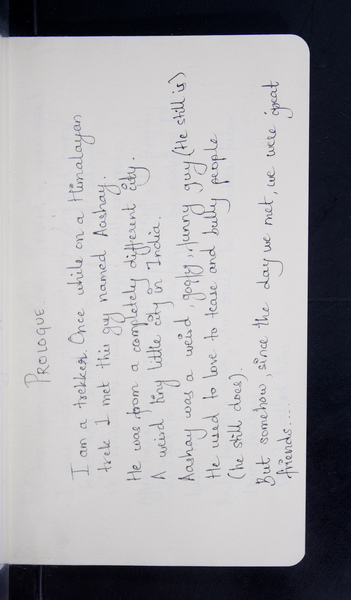 PROLOGUE
I am a trekker. Once while on a Himalayan
trek I met this guy named Aashay.
He was from a completely different city.
A weird tiny little city in India.
Aashay was a weird, goofy, funny guy (He still is)
He used to love to tease and bully people
(he still does).
But somehow, since the day we met, we were great
friends....